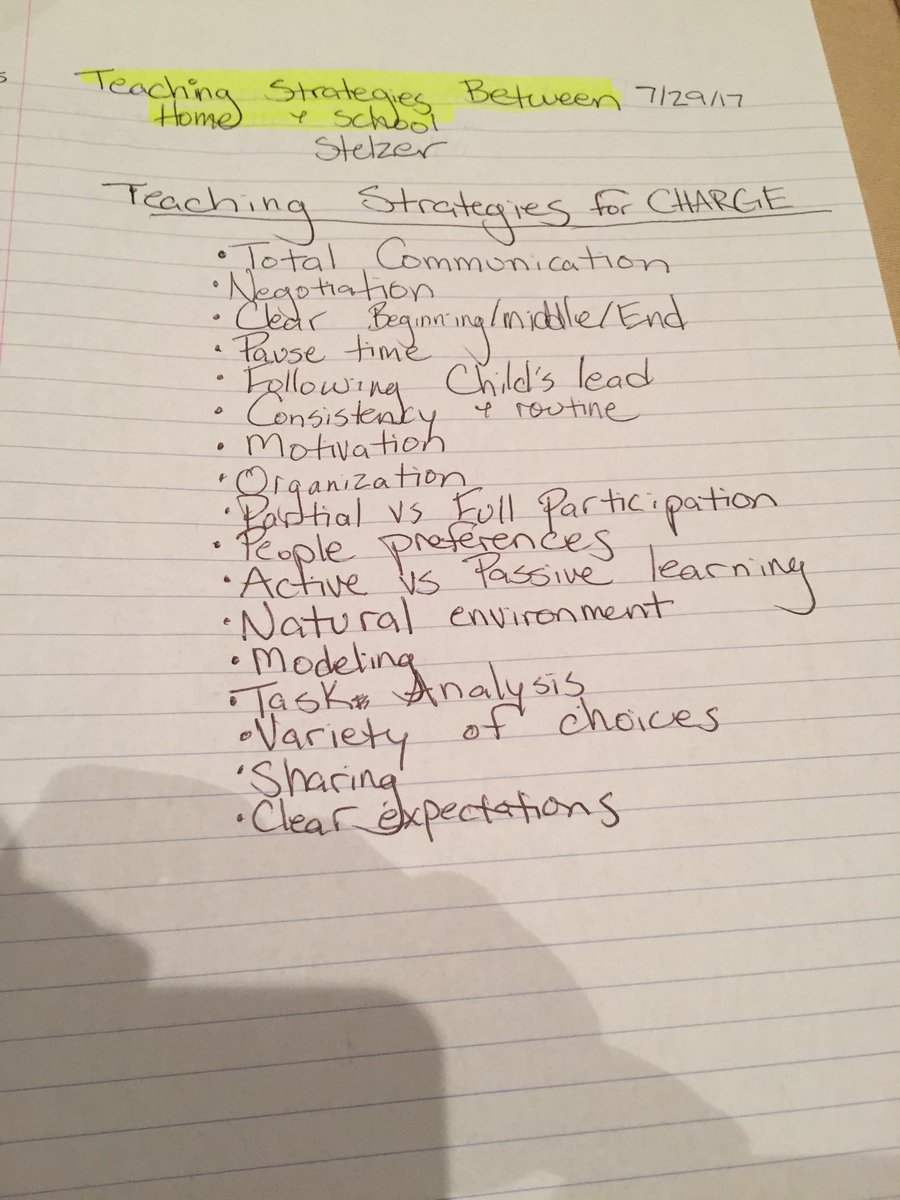 s
Teaching Strategies Between 7/29/17
Home + School
Stelzer
Teaching Strategies for CHARGE
• Total Communication
• Negotiation
• Clear Beginning/middle/End
• Pause time
• Following Child's lead
• Consistency + routine
• Motivation
• Organization
• Partial vs Full Participation
• People preferences
• Active vs Passive learning
• Natural environment
• Modeling
• Task Analysis
• Variety of choices
• Sharing
• Clear expectations